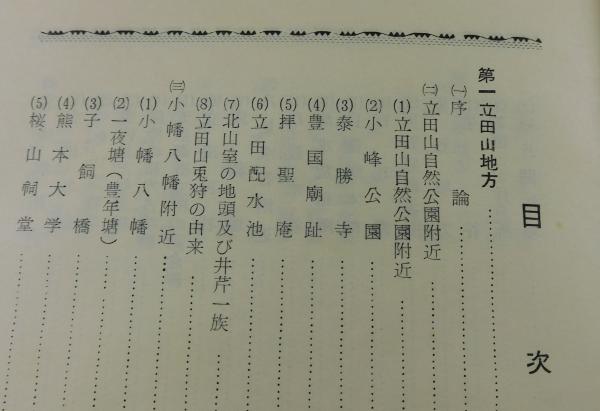 目次
第一立田山地方
㈠序論
㈡立田山自然公園附近
⑴立田山自然公園附近
⑵小峰公園
⑶泰勝寺
⑷豊国廟趾
⑸拝聖庵
⑹立田配水池
⑺北山室の地頭及び井芹一族
⑻立田山兎狩の由来
㈢小幡八幡附近
⑴小幡八幡
⑵一夜塘(豊年塘)
⑶子飼橋
⑷熊本大学
⑸桜山祠堂